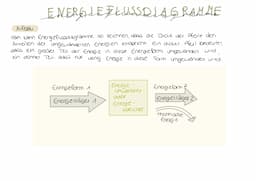 ENERGIEFLUSSDIAGRAMME
Aufbau
Energieflussdiagramme so zeichnen dass die Dicke der Pfeile den
Anteilen der umgewandelten Energien entspricht. Ein dicker Pfeil bedeutet,
dass ein großer Teil der Energie in diese Energieform umgewandelt wird
ein dünner Teil, dass nur wenig Energie in diese Form umgewandelt wird
Energieform 1
Energieträger 1
Energie-
umwandler
oder
Energie-
wandler
Energieform 2
Energieträger 2
thermische
Energie